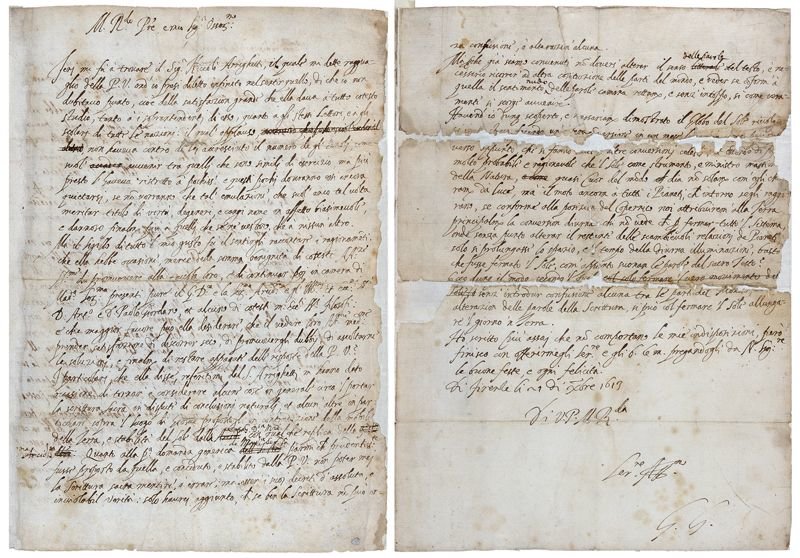 M. R.do P.re e mio Sig.r Oss.mo
Ieri mi fu a trovare il Sig. Niccolò Arrighetti, il quale mi dette raggua-
glio della P. V. ond'io presi diletto infinito nel sentir quello, di che io non
dubitavo punto, cioè della satisfazion grande che ella dava a tutto cotesto
studio, tanto a i sopraintendenti di esso, quanto a gli stessi lettori, e a gli
scolari di tutte le nazioni: il qual applauso
non aveva contro di lei accresciuto il numero de gl'emoli, come
suole avvenir tra quelli che sono simili di esercizio, ma ben
presto l'aveva ristretto a pochiss.mi e questi pochi dovranno essi ancora
quietarsi, se non vorranno che tal emulazione, che suole anco tal volta
meritar titolo di virtù, degeneri, e cangi nome in affetto biasimevole,
e dannoso finalm.te più a quelli che se ne vestono che a nissun altro.
Ma il sigillo di tutto il mio gusto fu il sentirgli raccontar i ragionam.ti,
che ella ebbe occasione, mercè della somma benignità di coteste Altez.
Ser.me di promuovere alla tavola loro, e di continuar poi in camera di
Mad.ma Ser.ma presenti pure il G. D. e la Ser.ma
D. Ant.o e D. Paolo Giordano, et alcuni di cotesti filosofi.
e che maggior favore può ella desiderare, che il veder loro Altez. med.me
prender satisfazione di discorrer seco, di promuovergli dubbi, di ascoltarne
le soluzioni, e finalm. di restare appagati delle risposte della P. V.
I particolari che ella disse, referitimi dal S. Arrighetti, mi hanno dato
occasione di tornar a considerare alcune cose in generale circa 'l portar
la scrittura sacra in dispute di conclusioni naturali, et alcun'altre in par-
ticolari sopra 'l luogo di Giosuè propostoli in contradizione della mobilità
della Terra, e stabilità del Sole dalla con qualche replica della Ser.ma
Arciduc.sa Quanto alla p.a domanda generica parmi che prudentiss.te
fusse proposto da quella, e conceduto, e stabilito dalla P. V. non poter mai
la scrittura sacra mentire, o errare, ma esser i suoi decreti d'assoluta, e
inviolabil verità: solo haurei aggiunto, che se ben la Scrittura non può er-
ne confusione, o alterazion alcuna.
Ma se già siamo convenuti non doversi alterar il senso delle parole del testo, è ne-
cessario ricorrer ad altra costituzione delle parti del mondo, e veder se conforme a
quella il sentimento delle parole camina rettam.te, e senza intoppo, si come vera-
menti si scorge avvenire.
Havend'io dunq. scoperto, e necessariam. dimostrato il globo del Sole rivolgersi
in se stesso facendo un'intera conversione in un mese
verso appunto, che si fanno tutte l'altre conversioni celesti
molto probabile e ragionevole che il Sole, come strumento, e ministro massimo
della Natura quasi cuor del mondo dia no solam. com' egli chia-
ram. dà luce, ma il moto ancora a tutti i Pianeti, che intorno segli raggi-
rano, se conforme alla posizion del Copernico noi attribuirem alla Terra
principalm. la conversion diurna, chi no vede che p. fermar tutto 'l sistema
onde senza punto alterar il restante delle scambievoli relazioni de Pianeti
solo si prolungassi lo spazio, e 'l tempo della diurna illuminazione, bastò
che fusse fermato 'l Sole, com'appunto suonan le parole del sacro testo.
Ecco dunq. il modo, secondo il quale
senz'introdur confusione alcuna tra le parti del mondo
alterazion delle parole della Scrittura, si può col fermar il Sole allunga-
re 'l giorno in Terra.
Ho scritto più assai, che no comportano le mie indisposizioni, però
finisco con offerirmegli ser.re e gli b. le m. pregandogli da N. Sig.
le buone feste e ogni felicità.
Di Firenze li 21 di Xmbre 1613
Di V. P. M. R.da
Ser.re Aff.mo
G. G.